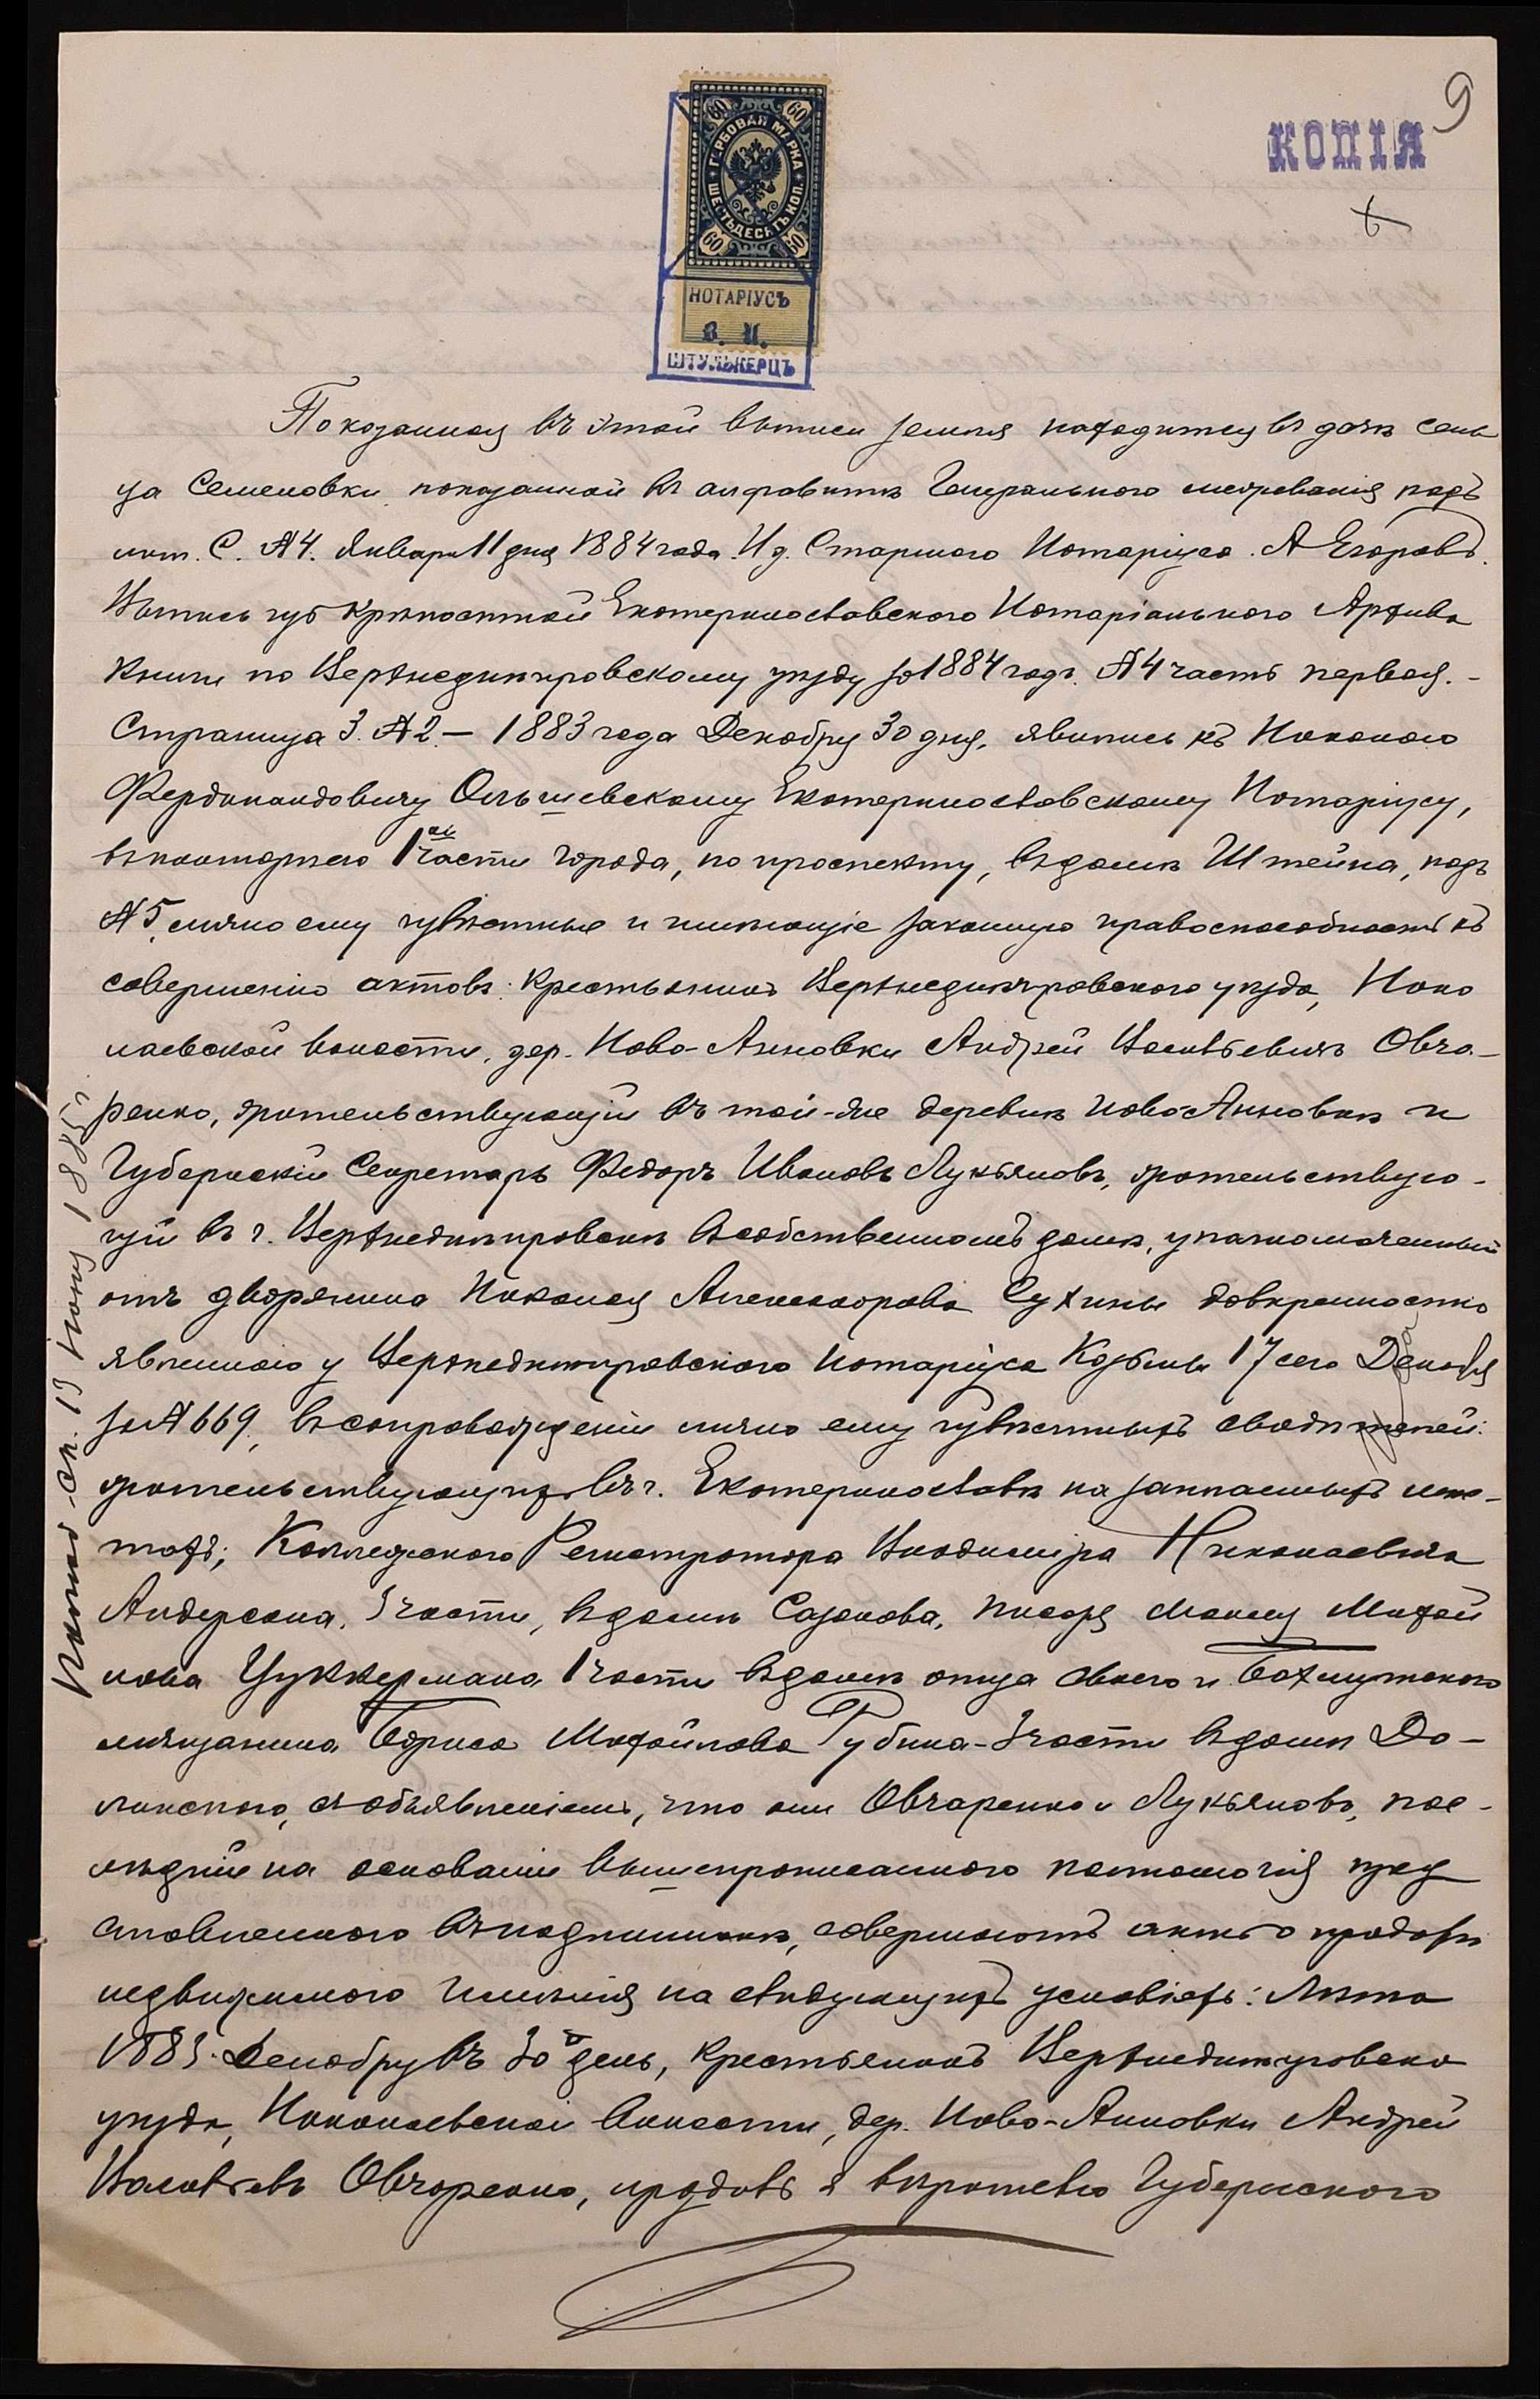 9
КОПІЯ
60 60
ГЕРБОВАЯ МАРКА
ШЕСТЬДЕСЯТЪ КОП.
60 60
НОТАРІУСЪ
В. И.
ШТУЛЬКЕРЦЪ
Показанная въ этой выписи земля находится въ дачѣ сель
ца Семеновки показанной въ алфавитѣ Генеральнаго межеванія подъ
лит. С. №4. Января 11 дня 1884 года. И д. Старшаго Нотаріуса. А Егоровъ.
Выпись изъ крѣпостной Екатеринославскаго Нотаріальнаго Архива
книги по Верхнеднѣпровскому уѣзду за 1884 годъ. №4 часть первая.-
Страница 3. №2.- 1883 года Декабря 30 дня, явились къ Николаю
Фердинандовичу Ольшевскому Екатеринославскому Нотаріусу,
въ конторѣ его 1ой части города, по проспекту, въ домѣ Штейна, подъ
№5, лично ему извѣстные и имѣющіе законную правоспособность къ
совершенію актовъ: крестьянинъ Верхнеднѣпровскаго уѣзда, Нико
лаевской волости, дер. Ново-Анновки Андрей Васильевичъ Овча-
ренко, жительствующій въ той-же деревнѣ Ново Анновкѣ и
Губернскій Секретарь Федоръ Ивановъ Лукьяновъ, жительствую-
щій въ г. Верхнеднѣпровскѣ въ собственномъ домѣ, уполномоченный
отъ дворянина Николая Александрова Сухины довѣренностію
явленною у Верхнеднѣпровскаго нотаріуса Козьмы 17 сего Декабря
за №669, въ сопровожденіи лично ему извѣстныхъ свидѣтелей:
жительствующихъ въ г. Екатеринославѣ на законныхъ мѣс-
тахъ; Коллежскаго Регистратора Владиміра Николаевича
Андерсона, 3 части, въ домѣ Сазонова, писаря Михай
лова Цуккермана 1 части въ домѣ отца своего и Бахмутскаго
мѣщанина Бориса Михайлова Губина-3 части въ домѣ До-
линскаго, съ объявленіемъ, что они Овчаренко и Лукьяновъ, пос-
лѣдній на основаніи вышепрописаннаго полномочія пред
ставленнаго въ подлинникѣ, совершаютъ актъ о продажѣ
недвижимаго имѣнія на слѣдующихъ условіяхъ: Лѣта
1883. Декабря въ 30й день, крестьянинъ Верхнеднѣпровска
уѣзда, Николаевской волости, дер. Ново-Анновки Андрей
Васильевъ Овчаренко, продалъ я вѣрителю Губернскаго
1885 г.